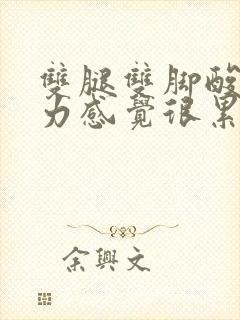 雙腿雙脚酸
力感覺很累
余興文